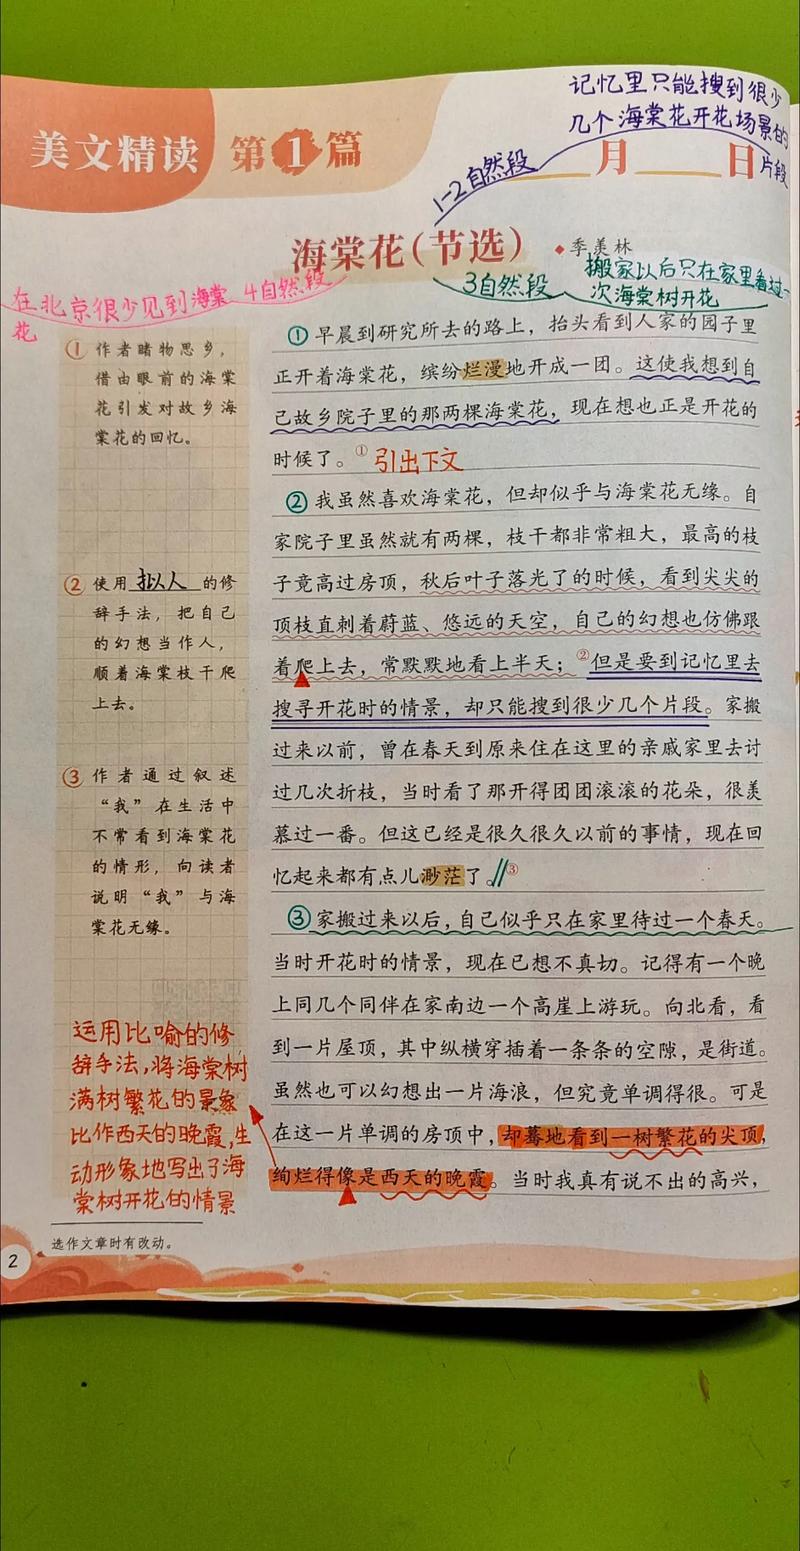 记忆里只能搜到很少
几个海棠花开花场景的
片段
美文精读 第1篇
1-2自然段
月 日
海棠花(节选) ◆季羡林
搬家以后只在家里看过一
次海棠树开花
3自然段
在北京很少见到海棠
花
4自然段
① 作者睹物思乡，
借由眼前的海棠
花引发对故乡海
棠花的回忆。
② 使用拟人的修
辞手法，把自己
的幻想当作人，
顺着海棠枝干爬
上去。
③ 作者通过叙述
“我”在生活中
不常看到海棠花
的情形，向读者
说明“我”与海
棠花无缘。
运用比喻的修
辞手法，将海棠树
满树繁花的景象
比作西天的晚霞，生
动形象地写出了海
棠树开花的情景
①早晨到研究所去的路上，抬头看到人家的园子里
正开着海棠花，缤纷烂漫地开成一团。这使我想到自
己故乡院子里的那两棵海棠花，现在想也正是开花的
时候了。① 引出下文
②我虽然喜欢海棠花，但却似乎与海棠花无缘。自
家院子里虽然就有两棵，枝干都非常粗大，最高的枝
子竟高过房顶，秋后叶子落光了的时候，看到尖尖的
顶枝直刺着蔚蓝、悠远的天空，自己的幻想也仿佛跟
着爬上去，常默默地看上半天；②但是要到记忆里去
搜寻开花时的情景，却只能搜到很少几个片段。家搬
过来以前，曾在春天到原来住在这里的亲戚家里去讨
过几次折枝，当时看了那开得团团滚滚的花朵，很羡
慕过一番。但这已经是很久很久以前的事情，现在回
忆起来都有点儿渺茫了。③
③家搬过来以后，自己似乎只在家里待过一个春天。
当时开花时的情景，现在已想不真切。记得有一个晚
上同几个同伴在家南边一个高崖上游玩。向北看，看
到一片屋顶，其中纵横穿插着一条条的空隙，是街道。
虽然也可以幻想出一片海浪，但究竟单调得很。可是
在这一片单调的房顶中，却蓦地看到一树繁花的尖顶，
绚烂得像是西天的晚霞。当时我真有说不出的高兴，
选作文章时有改动。
2